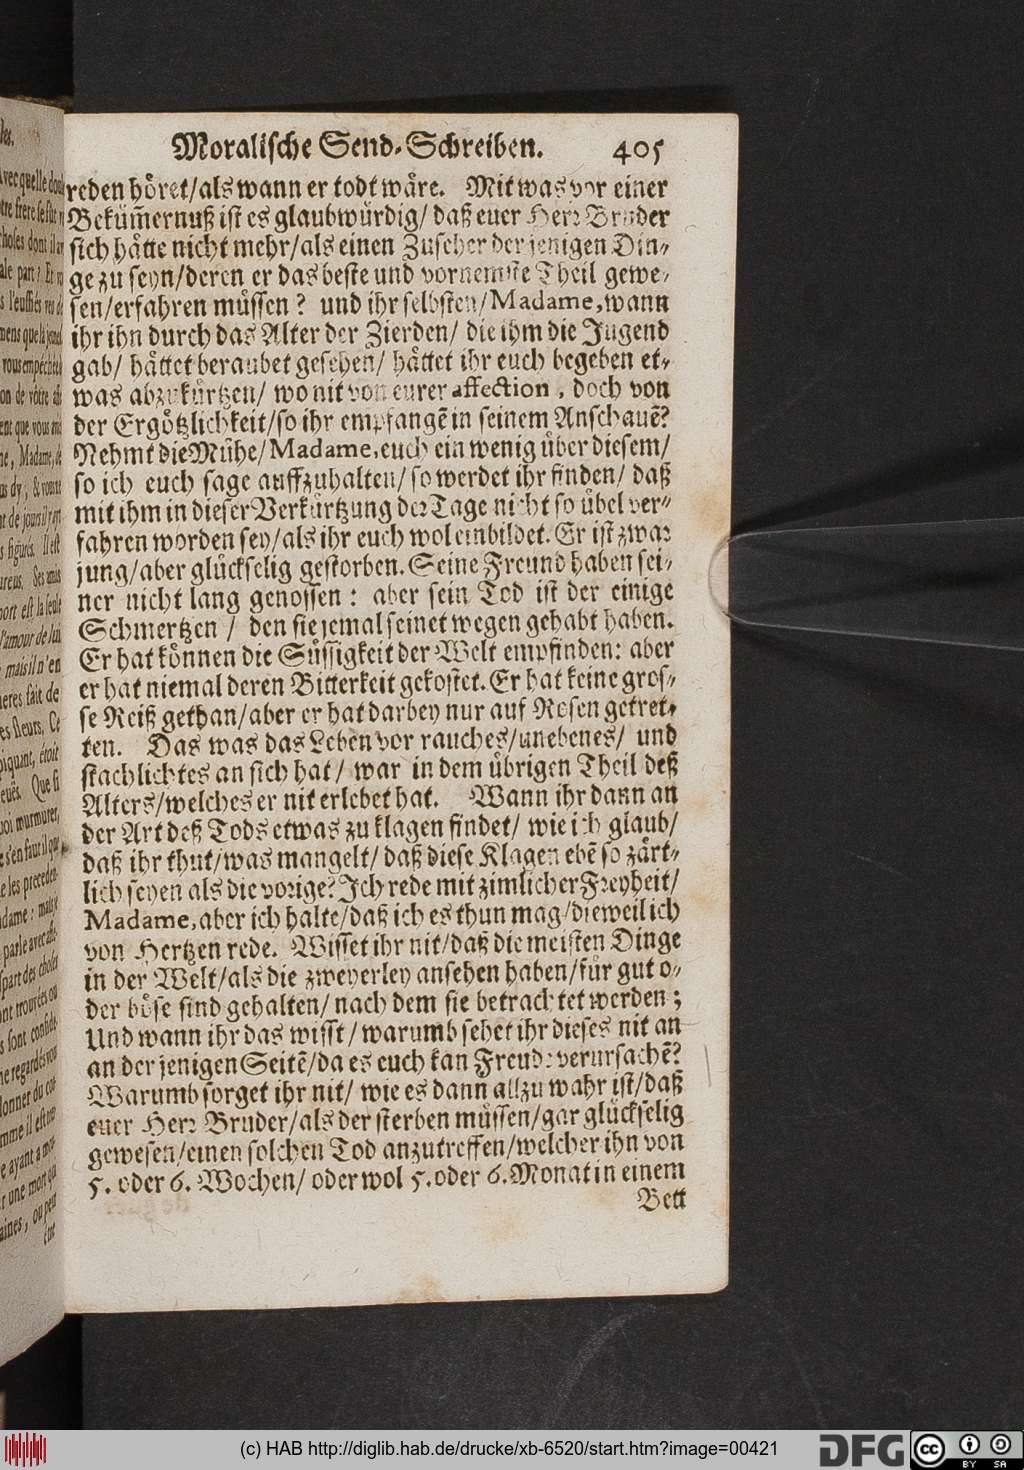 Moralische Send-Schreiben. 405
reden höret/als wann er todt wäre. Mit was vor einer
Bekūm̄ernuß ist es glaubwürdig/ daß euer Herr Bruder
sich hätte nicht mehr/als einen Zuseher derjenigen Din-
ge zu seyn/deren er das beste und vornemste Theil gewe-
sen/erfahren müssen? und ihr selbsten/Madame, wann
ihr ihn durch das Alter der Zierden/ die ihm die Jugend
gab/ hättet beraubet gesehen/ hättet ihr euch begeben et-
was abzukürtzen/ wo nit von eurer affection, doch von
der Ergötzlichkeit/so ihr empfangē in seinem Anschauē?
Nehmt die Mühe/Madame, euch ein wenig über diesem/
so ich euch sage auffzuhalten/ so werdet ihr finden/ daß
mit ihm in dieser Verkürtzung der Tage nicht so übel ver-
fahren worden sey/als ihr euch wol einbildet. Er ist zwar
jung/aber glückselig gestorben. Seine Freund haben sei-
ner nicht lang genossen: aber sein Tod ist der einige
Schmertzen / den sie jemal seinet wegen gehabt haben.
Er hat können die Süssigkeit der Welt empfinden: aber
er hat niemal deren Bitterkeit gekostet. Er hat keine gros-
se Reiß gethan/aber er hat darbey nur auf Rosen getret-
ten. Das was das Leben vor rauches/unebenes/ und
stachlichtes an sich hat/ war in dem übrigen Theil deß
Alters/welches er nit erlebet hat. Wann ihr dann an
der Art deß Tods etwas zu klagen findet/ wie ich glaub/
daß ihr thut/was mangelt/ daß diese Klagen ebē so zärt-
lich seyen als die vorige? Ich rede mit zimlicher Freyheit/
Madame, aber ich halte/daß ich es thun mag/dieweil ich
von Hertzen rede. Wisset ihr nit/daß die meisten Dinge
in der Welt/als die zweyerley ansehen haben/für gut o-
der böse sind gehalten/ nach dem sie betrachtet werden;
Und wann ihr das wisst/ warumb sehet ihr dieses nit an
an derjenigen Seitē/da es euch kan Freude verursachē?
Warumb sorget ihr nit/ wie es dann allzu wahr ist/daß
euer Herr Bruder/als der sterben müssen/gar glückselig
gewesen/einen solchen Tod anzutreffen/welcher ihn von
5. oder 6. Wochen/ oder wol 5. oder 6. Monat in einem
Bett
(c) HAB http://diglib.hab.de/drucke/xb-6520/start.htm?image=00421
DFG
cc BY SA